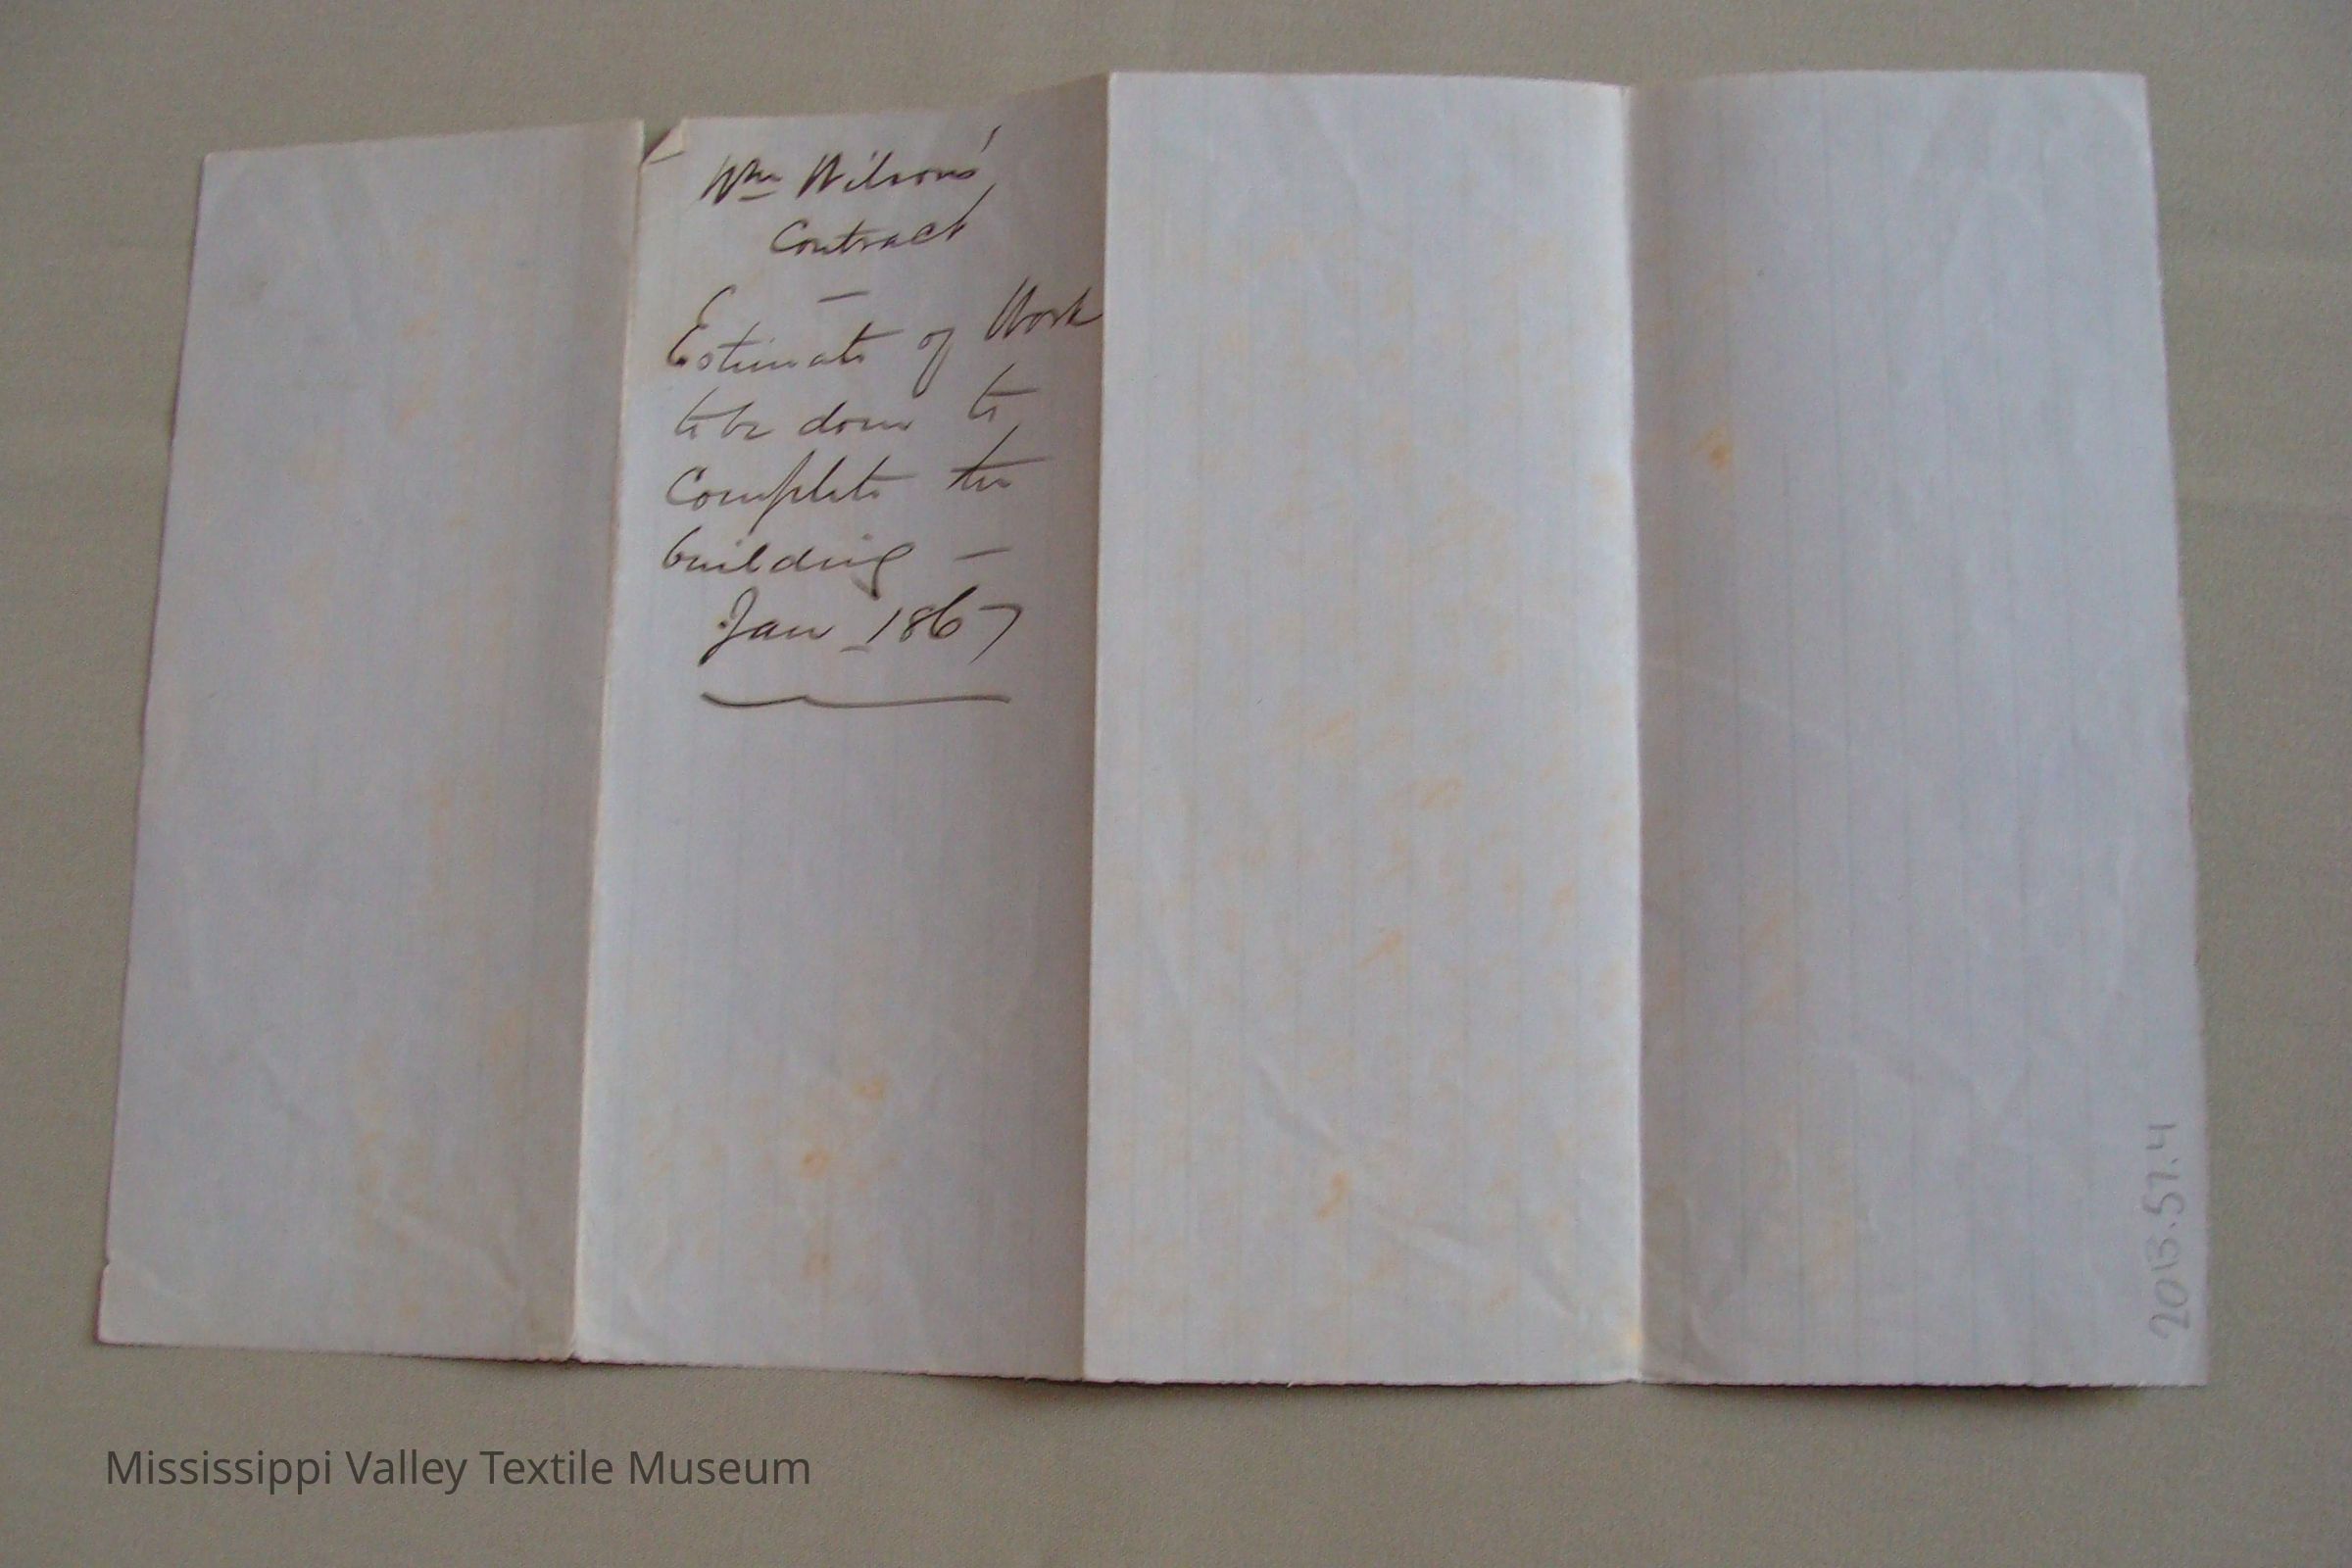 Wm Wilsons'
Contract
—
Estimate of Work
to be done to
Complete the
building —
Jan 1867
2013.57.4
Mississippi Valley Textile Museum